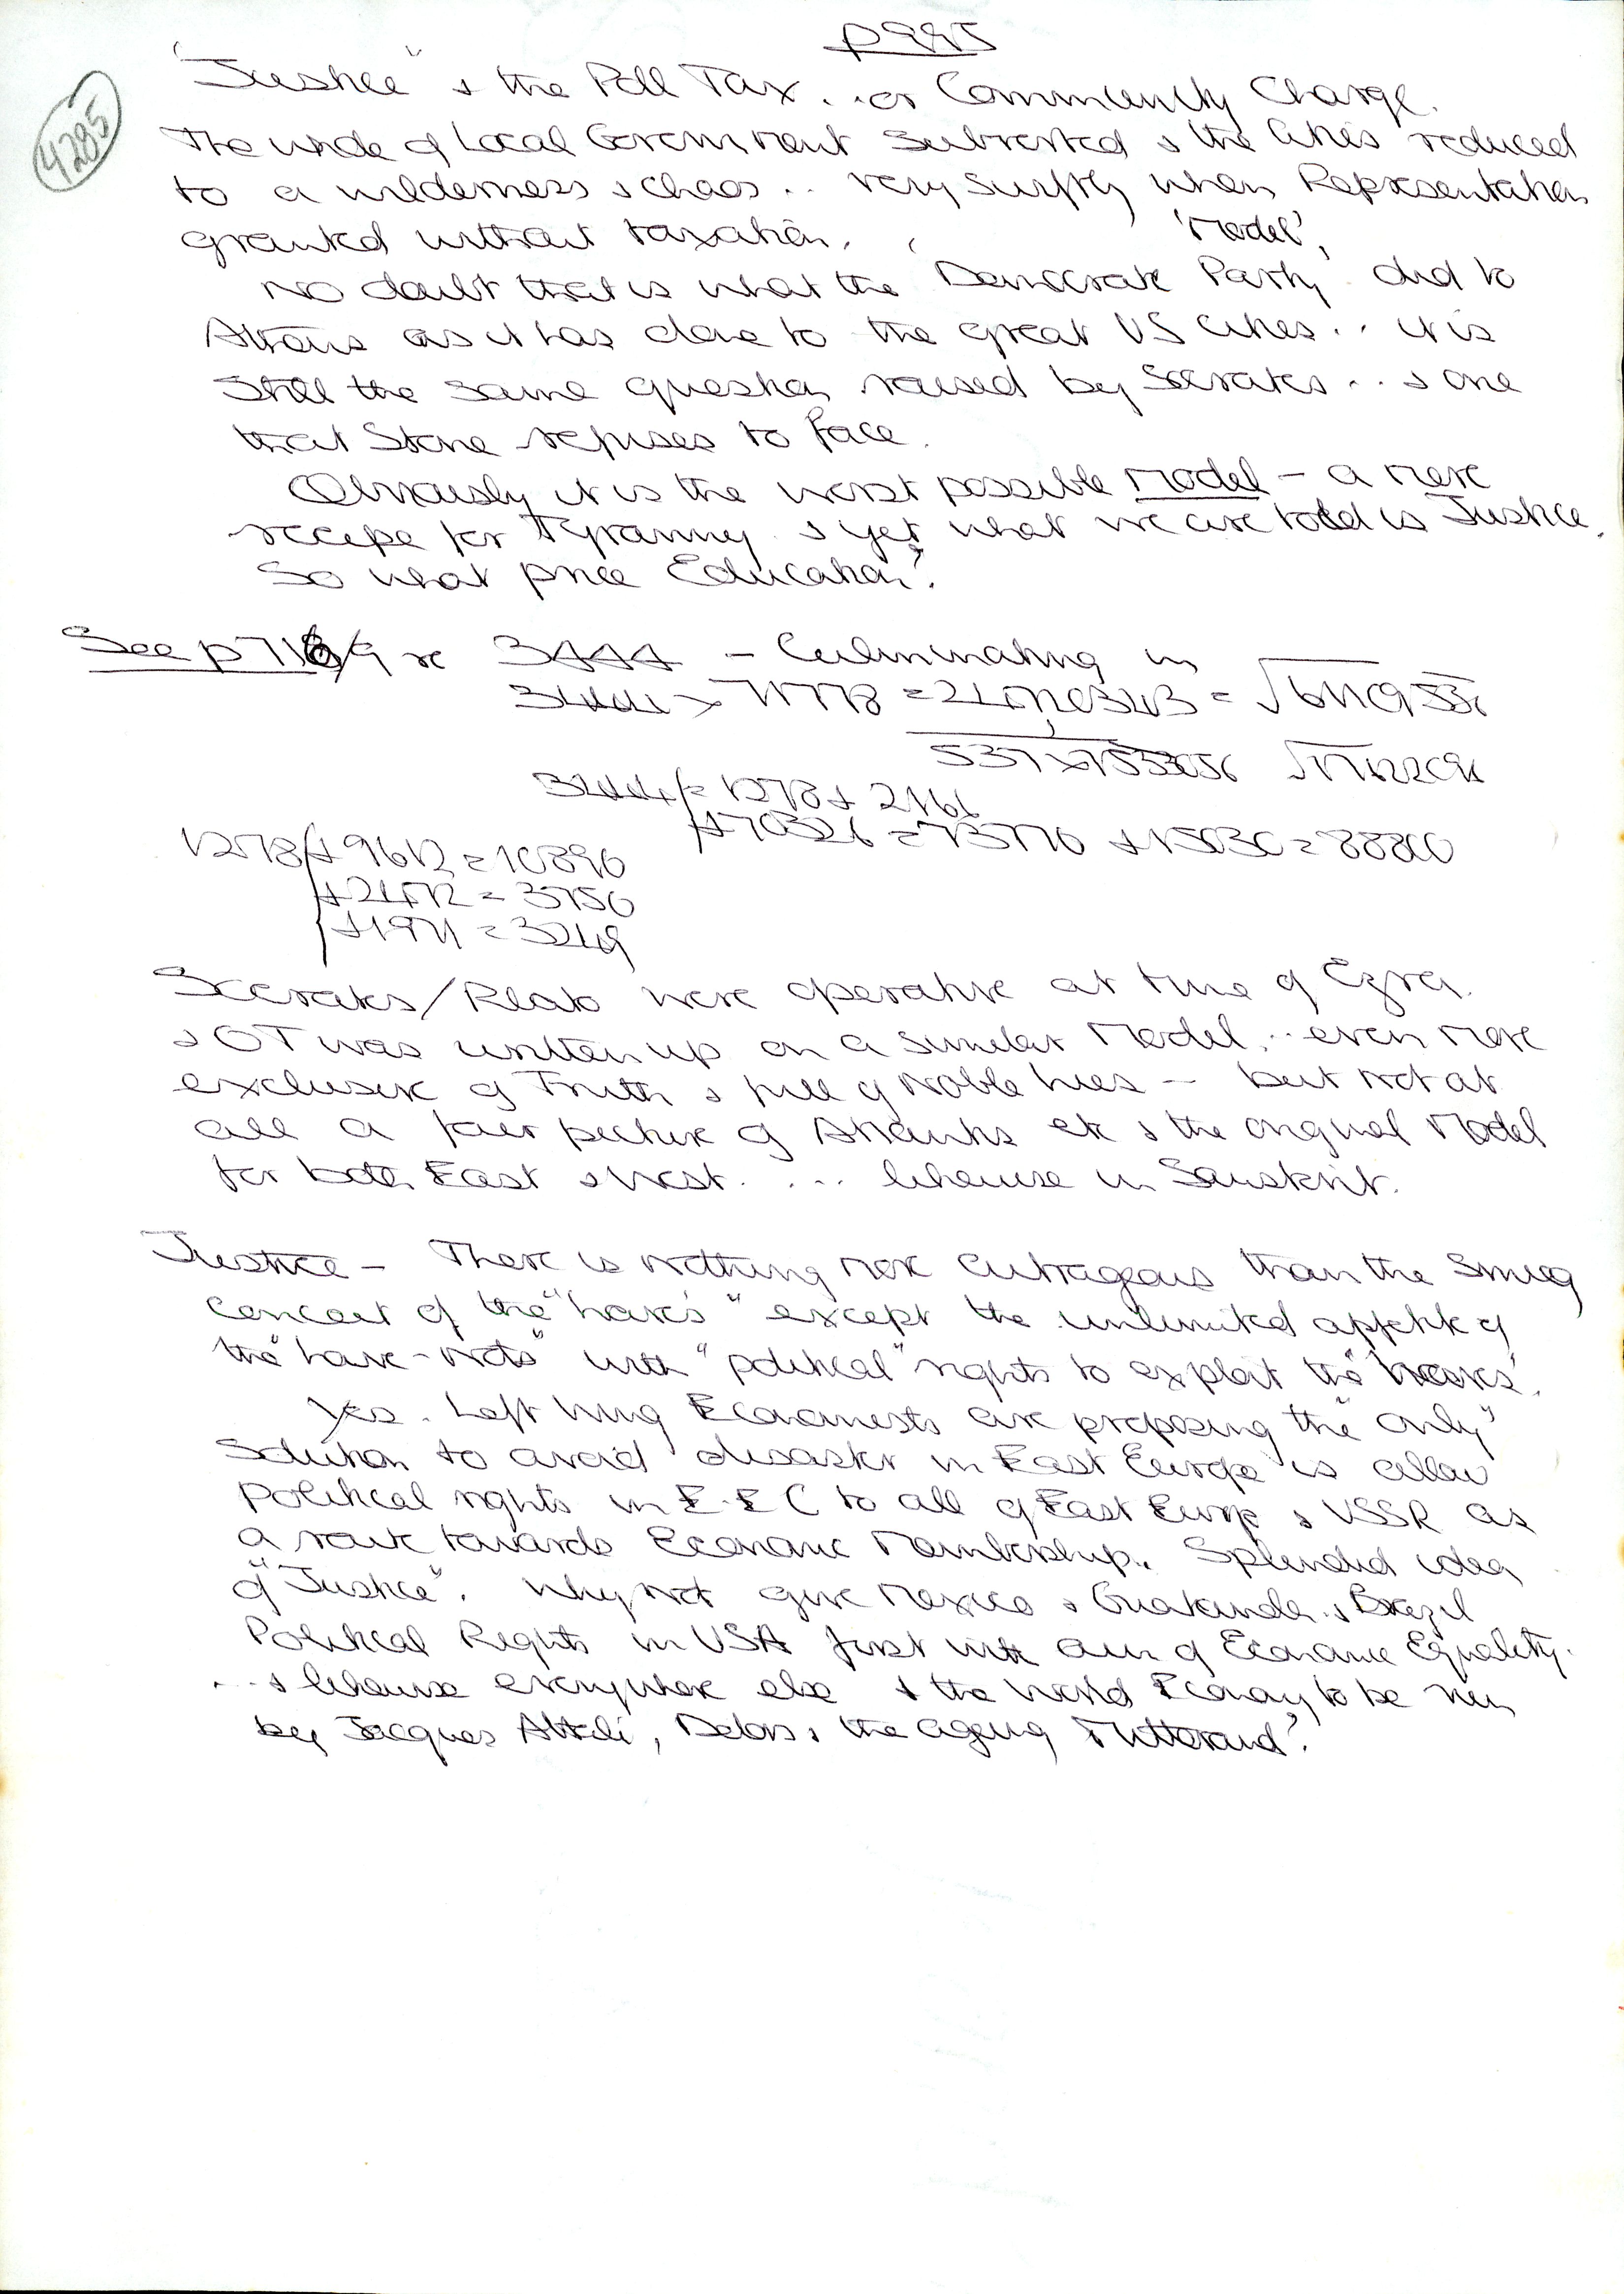 4285
"Justice" & the Poll Tax . . or Community Charge.
The whole of Local Government subverted & the cities reduced
to a wilderness & chaos . . very swiftly when Representation
granted without taxation.
'Model'
No doubt that is what the 'Democratic Party' did to
Athens as it has done to the great US cities . . it is
still the same question raised by Socrates . . & one
that Stone refuses to face.
Obviously it is the worst possible Model – a mere
recipe for Tyranny & yet what we are told is Justice.
So what price Education?
See p 7169 re 3444 – Culminating in
3444 x
3444 = 1278 + 2166
+ 70326 = 73770 + 15030 = 88800
1278 + 9612 = 10890
+ 2472 = 3750
+ 1971 = 3249
Socrates/Plato were operative at time of Ezra.
& OT was written up on a similar Model . . even more
exclusive of Truth & full of Noble lies – but not at
all a fair picture of Atlantis etc & the original Model
for both East & West. . . . likewise in Sanskrit.
Justice – There is nothing more outrageous than the smug
conceit of the "haves" except the unlimited appetite of
the "have-nots" with "political" rights to exploit the "haves".
Yes. Left Wing Economists are proposing the "only"
solution to avoid disaster in East Europe is allow
political rights in E.E.C to all of East Europe & USSR as
a route towards Economic Membership. Splendid idea
of "Justice". Why not give Mexico & Guatemala & Brazil
Political Rights in USA first with aim of Economic Equality.
. . . & likewise everywhere else & the World Economy to be run
by Jacques Attali, Delors & the ageing Mitterand?